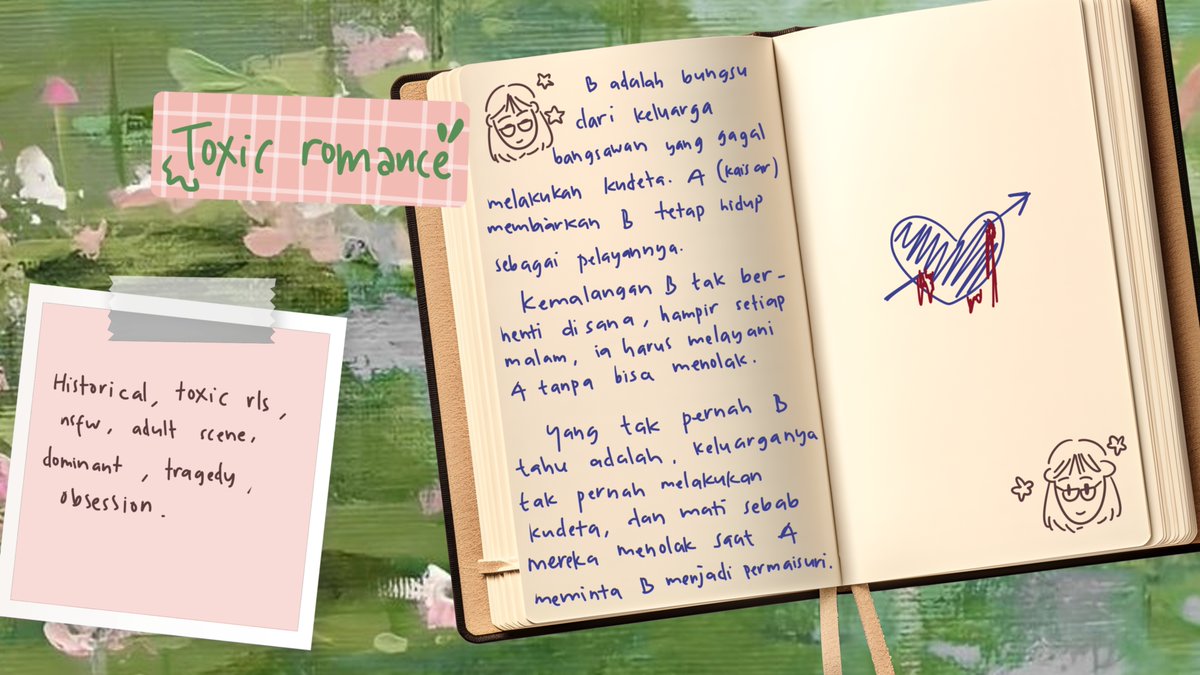 Toxic romance
Historical, toxic rls,
nsfw, adult scene,
dominant, tragedy,
obsession.
B adalah bungsu
dari keluarga
bangsawan yang gagal
melakukan kudeta. A (kaisar)
membiarkan B tetap hidup
sebagai pelayannya.
Kemalangan B tak ber-
henti disana, hampir setiap
malam, ia harus melayani
A tanpa bisa menolak.
Yang tak pernah B
tahu adalah, keluarganya
tak pernah melakukan
kudeta, dan mati sebab
mereka menolak saat A
meminta B menjadi permaisuri.